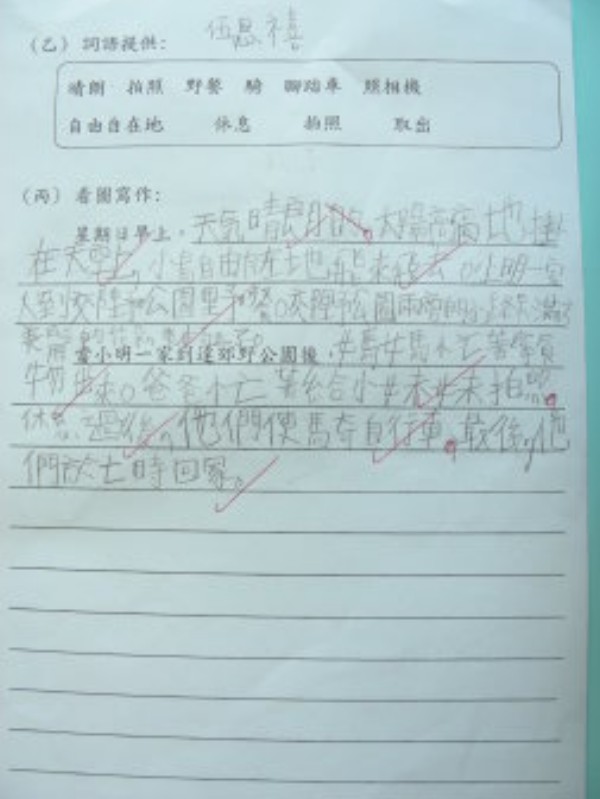 伍恩禧
(乙) 詞語提供:
晴朗 拍照 野餐 騎 腳踏車 照相機
自由自在地 休息 拍照 取出
(丙) 看圖寫作:
星期日早上,天氣晴朗的,太陽高高地掛
在天空上,小鳥自由自在地飛來飛去。小明一家
人到郊野公園野餐。郊野公園兩旁的
當小明一家到達郊野公園後,媽媽忙着
物出來。爸爸忙着給小妹妹拍照。
休息過後,他們便騎自行車。最後,他
們於七時回家。